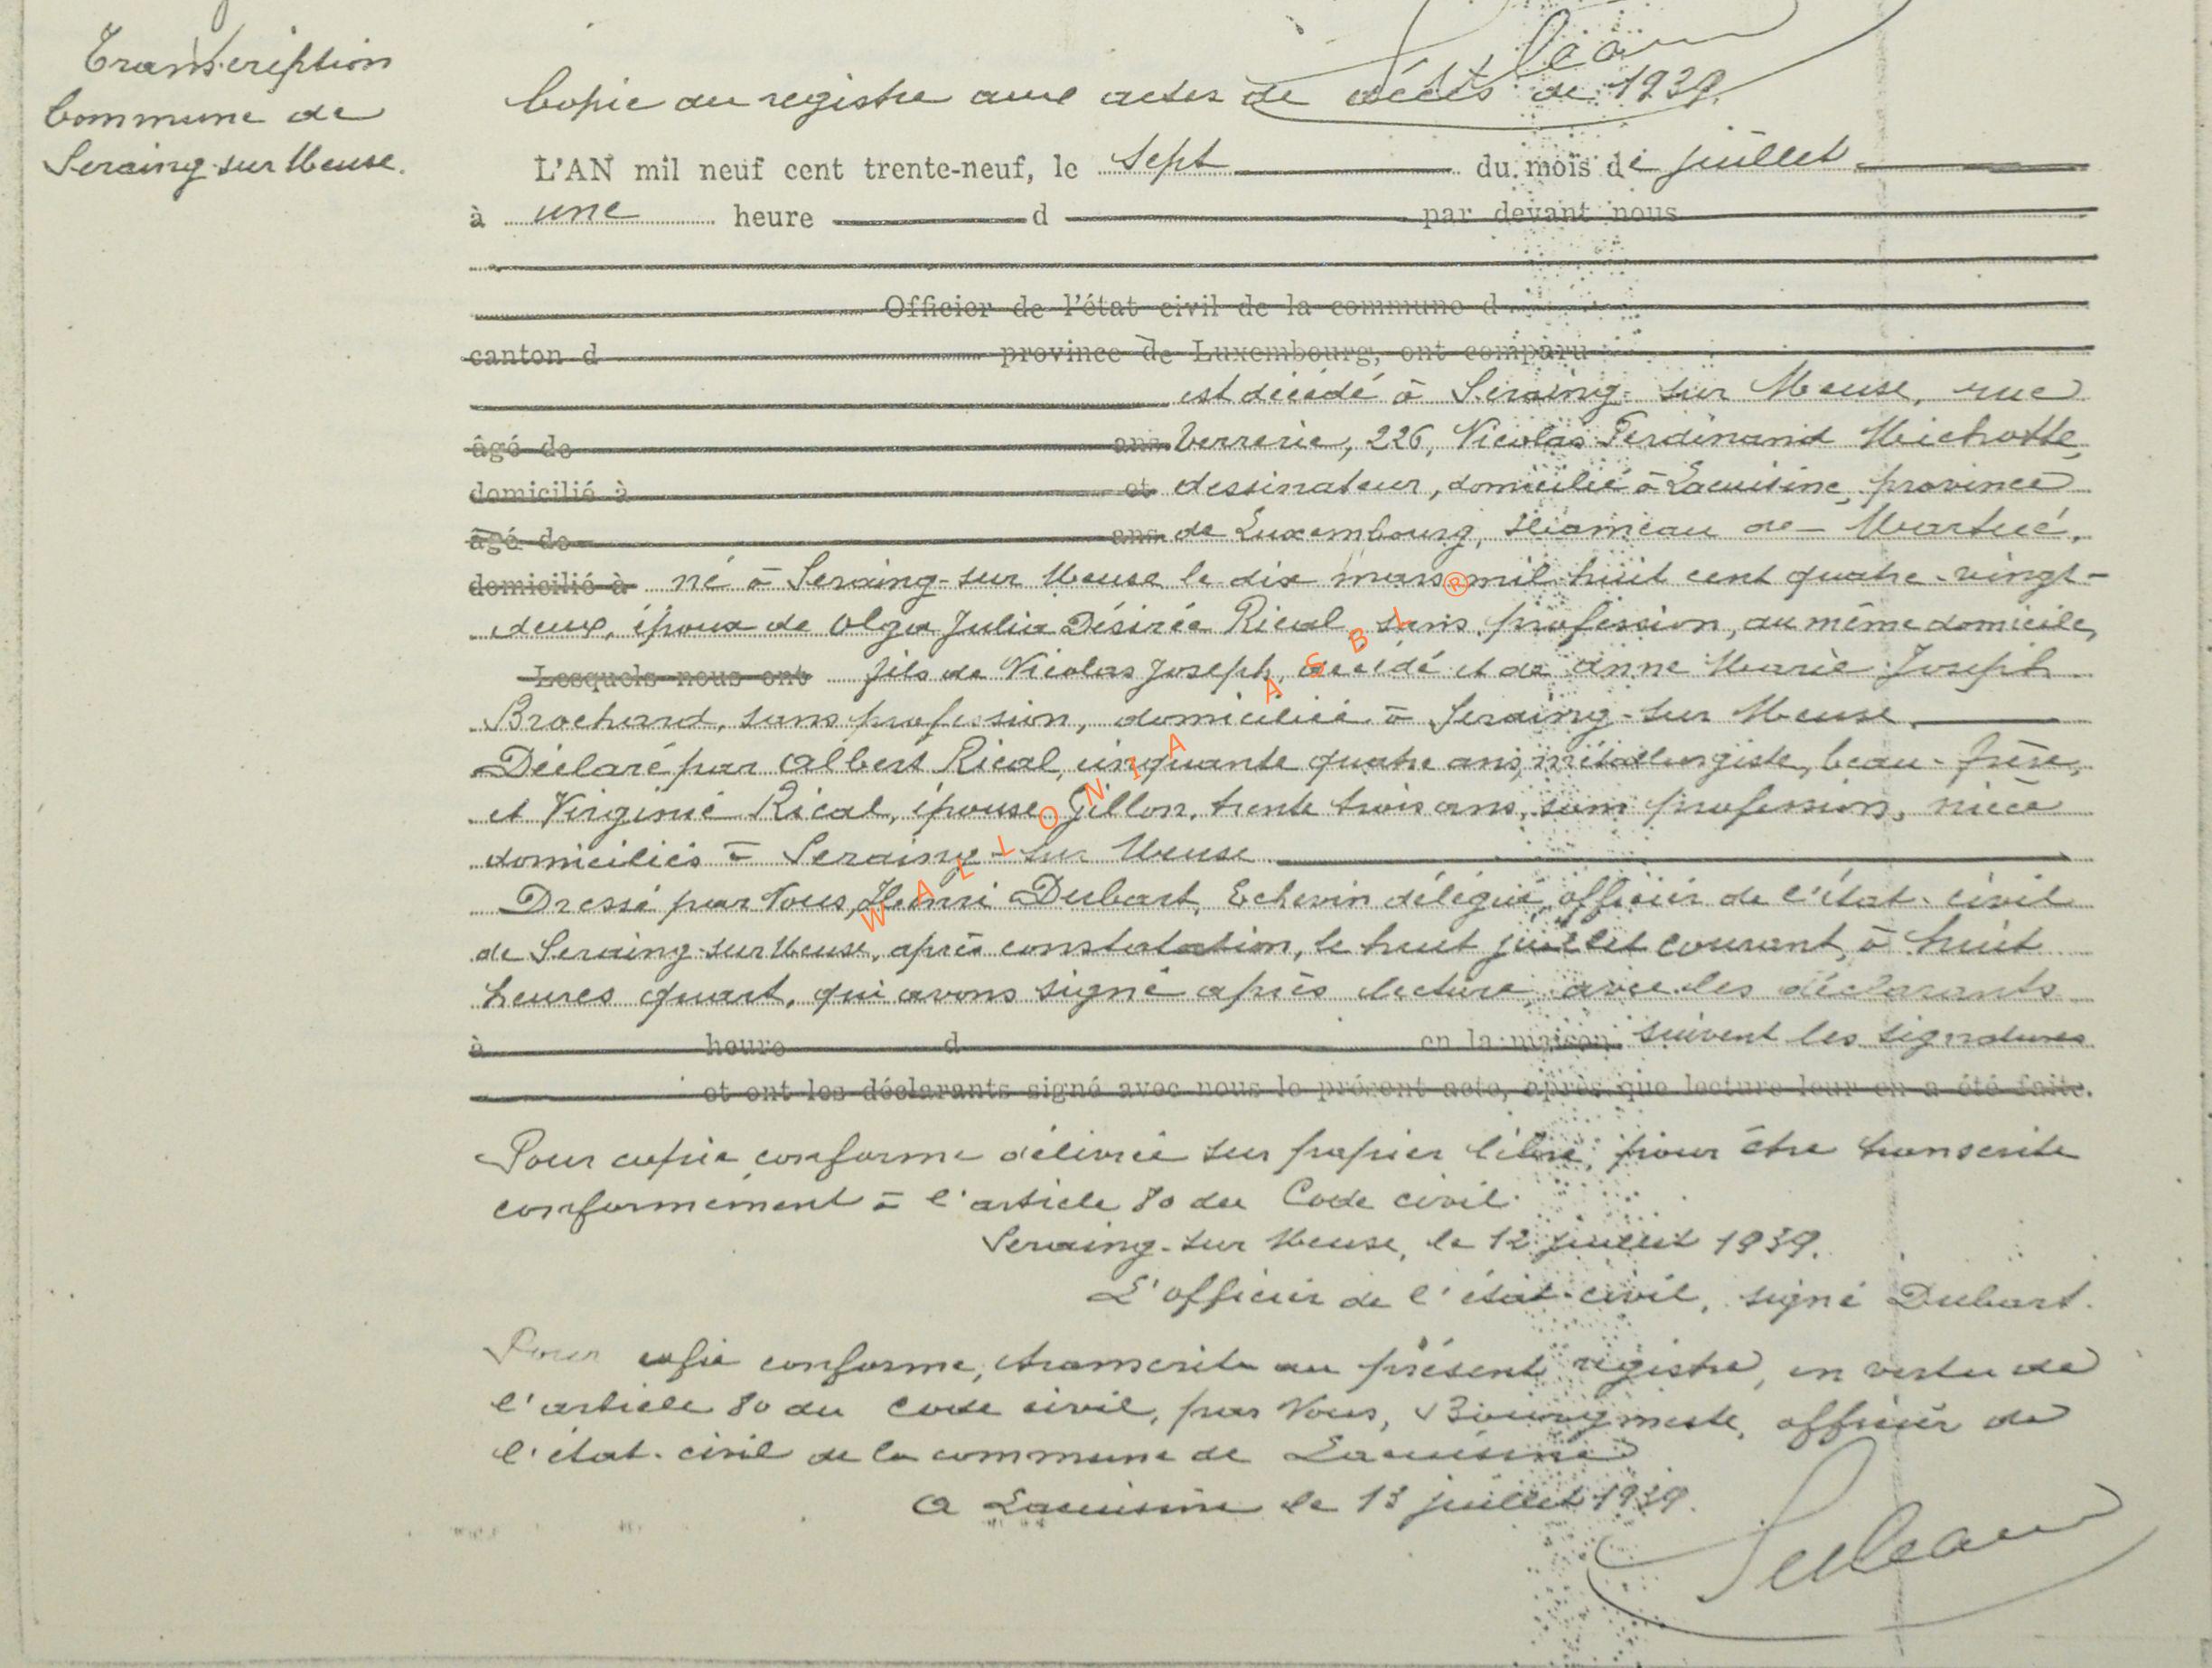 Transcription
Commune de
Seraing-sur Meuse.
Copie au registre aux actes de décès de 1939.
L'AN mil neuf cent trente-neuf, le sept du mois de juillet
à une heure d par devant nous
Officier de l'état civil de la commune d
canton d province de Luxembourg, ont comparu
est décédé à Seraing-sur Meuse, rue
âgé de ans Verrerie, 226, Nicolas Ferdinand Michotte,
domicilié à et dessinateur, domicilié à Lacuisine, province
âgé de ans de Luxembourg, Hameau de Martué,
domicilié à né à Seraing-sur Meuse le dix mars mil huit cent quatre-vingt-
deux, époux de Olga Julia Désirée Rical, sans profession, au même domicile,
Lesquels nous ont fils de Nicolas Joseph, décédé et de Anne Marie Joseph
Brochard, sans profession, domiciliée à Seraing-sur Meuse.
Déclaré par Albert Rical, cinquante quatre ans, métallurgiste, beau-frère,
et Virginie Rical, épouse Gillon, trente trois ans, sans profession, nièce
domiciliés à Seraing-sur Meuse
Dressé par Nous, Henri Dubart, Echevin délégué, officier de l'état-civil
de Seraing-sur Meuse, après constatation, le huit juillet courant, à huit
heures quart, qui avons signé après lecture, avec les déclarants
à heure d en la maison suivent les signatures
et ont les déclarants signé avec nous le présent acte, après que lecture leur en a été faite.
Pour copie conforme délivrée sur papier libre, pour être transcrite
conformément à l'article 80 du Code civil.
Seraing-sur Meuse, le 12 juillet 1939.
L'officier de l'état-civil, signé Dubart.
Pour copie conforme, transcrite au présent registre, en vertu de
l'article 80 du Code civil, par Nous, Bourgmestre, officier de
l'état-civil de la commune de Lacuisine
A Lacuisine le 13 juillet 1939.
WALLONIA ASBL ®